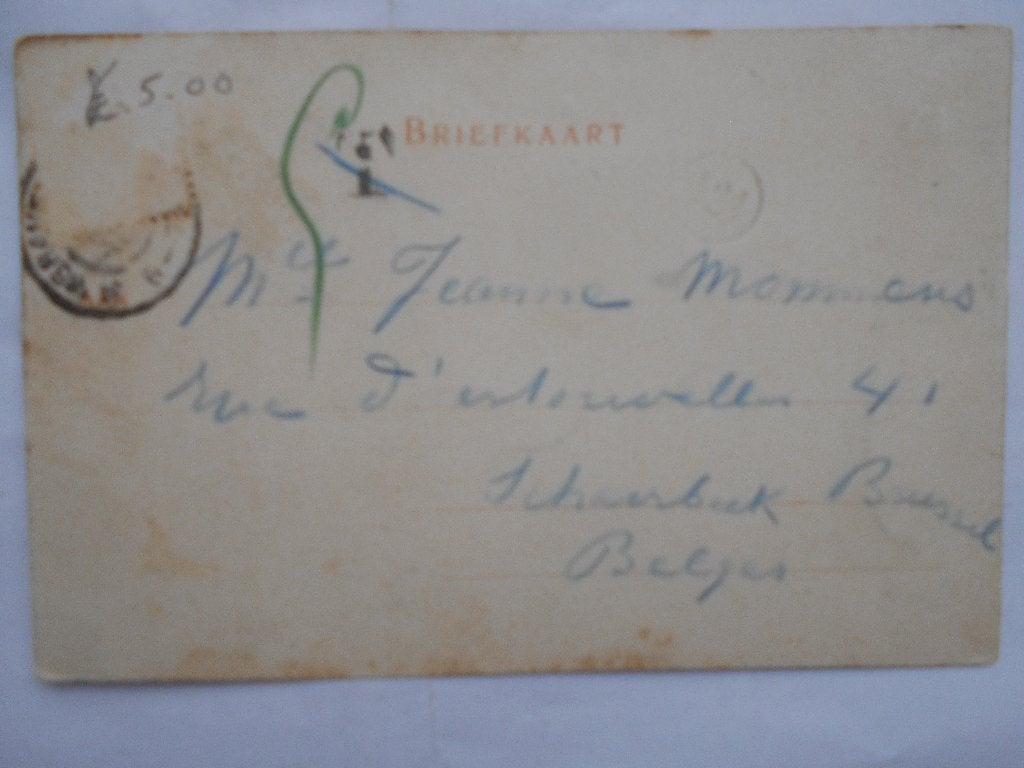 £.5.00
BRIEFKAART
Mlle Jeanne Mommens
rue d' 41
Schaerbeek Brussel
Belges